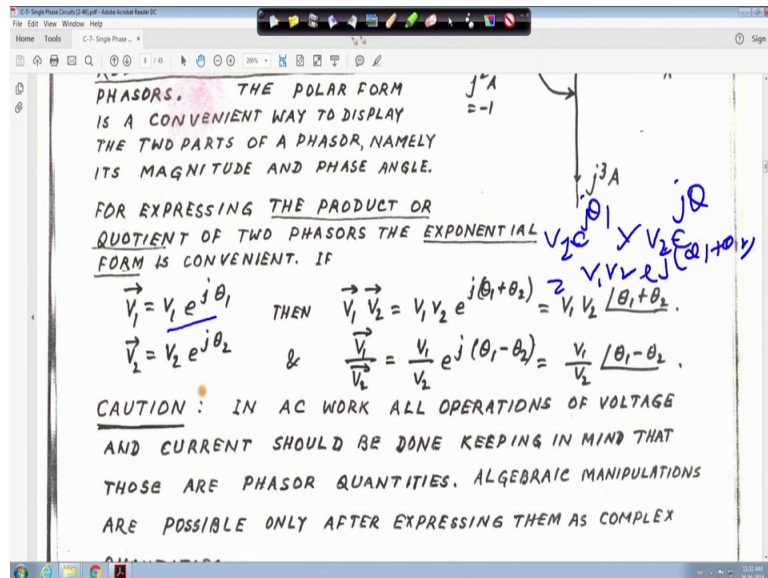 C-7- Single Phase Circuits [2-46].pdf - Adobe Acrobat Reader DC
File Edit View Window Help
Home Tools C-7- Single Phase ... × Sign
8 / 45 200%
PHASORS. THE POLAR FORM
IS A CONVENIENT WAY TO DISPLAY
THE TWO PARTS OF A PHASOR, NAMELY
ITS MAGNITUDE AND PHASE ANGLE.
j²A
=-1
j³A
FOR EXPRESSING THE PRODUCT OR
QUOTIENT OF TWO PHASORS THE EXPONENTIAL
FORM IS CONVENIENT. IF
V₂e^jθ₁ × V₂e^jθ
= V₁V₂ e^j(θ₁+θ₂)
V₁ = V₁ e^jθ₁ THEN V₁ V₂ = V₁ V₂ e^j(θ₁+θ₂) = V₁ V₂ ∠θ₁+θ₂ .
V₂ = V₂ e^jθ₂ & V₁/V₂ = V₁/V₂ e^j(θ₁-θ₂) = V₁/V₂ ∠θ₁-θ₂ .
CAUTION : IN AC WORK ALL OPERATIONS OF VOLTAGE
AND CURRENT SHOULD BE DONE KEEPING IN MIND THAT
THOSE ARE PHASOR QUANTITIES. ALGEBRAIC MANIPULATIONS
ARE POSSIBLE ONLY AFTER EXPRESSING THEM AS COMPLEX
11:32 AM